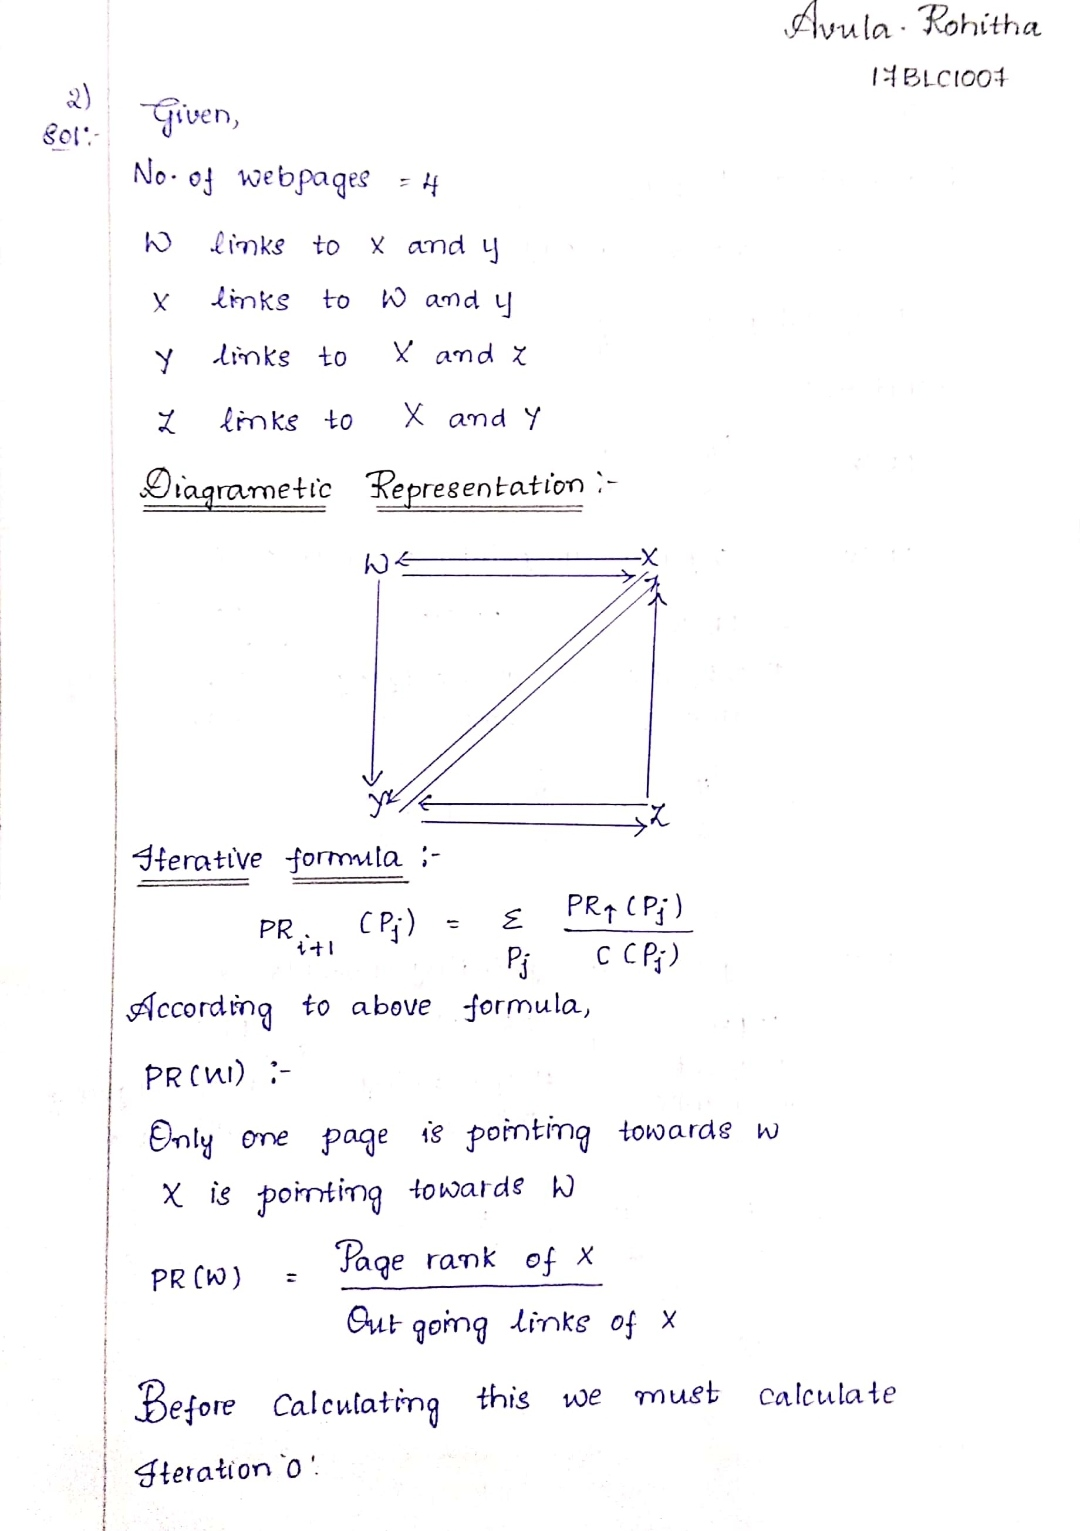 Avula. Rohitha
17BLC1007
2)
Sol:-
Given,
No. of webpages = 4
W links to X and y
X links to W and y
Y links to X and Z
Z links to X and Y
Diagrametic Representation :-
W X
Y Z
Iterative formula :-
PR i+1 (Pj) = Σ Pj PR↑ (Pj) / C (Pj)
According to above formula,
PR(W) :-
Only one page is pointing towards w
X is pointing towards W
PR (W) = Page rank of X / Out going links of X
Before Calculating this we must calculate
Iteration '0'.